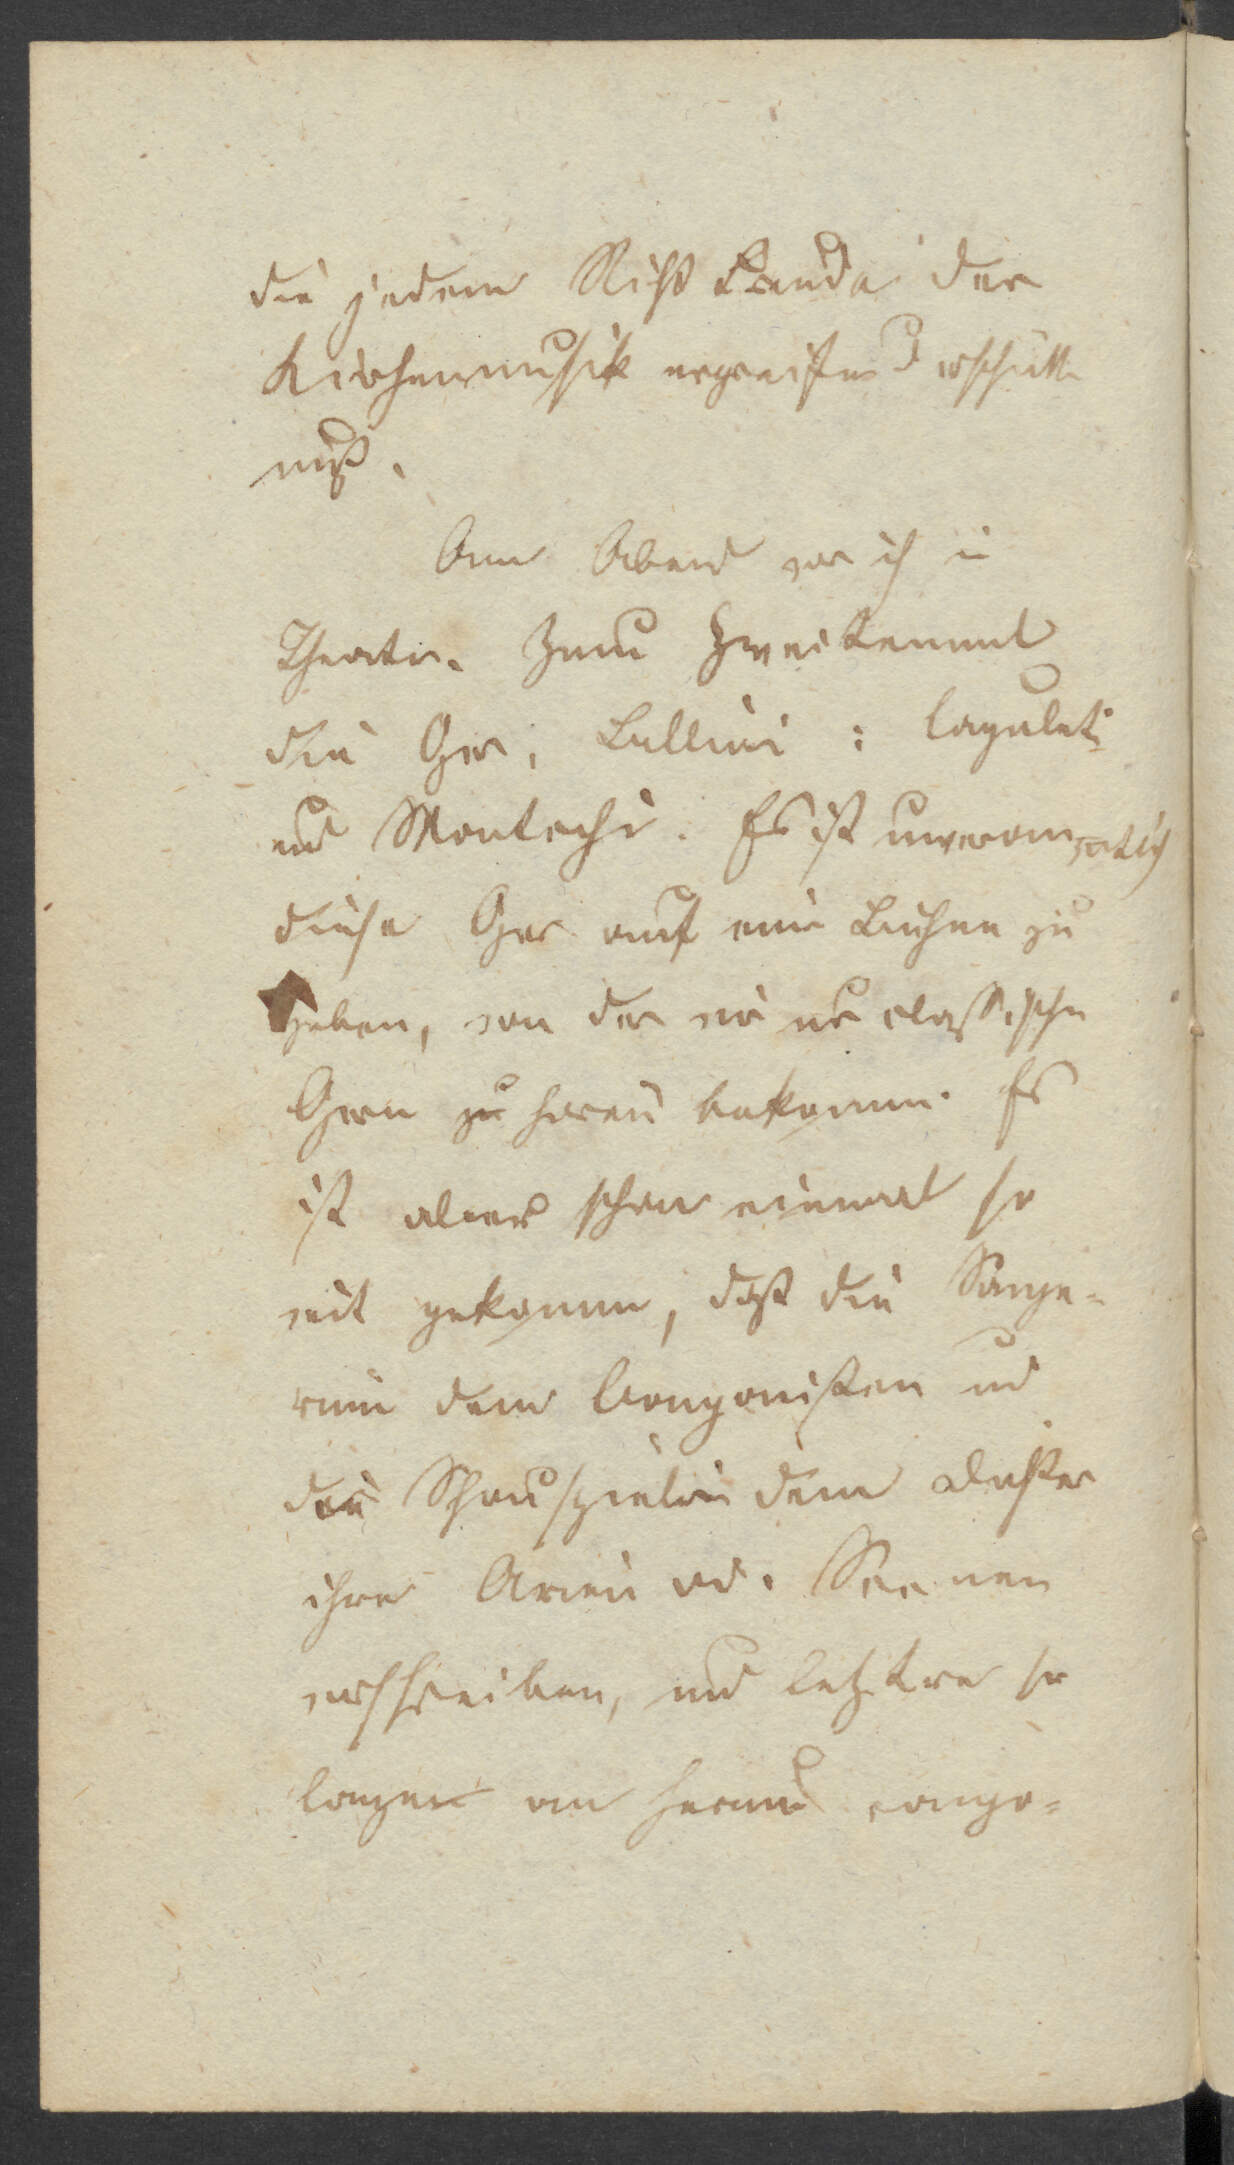 die jedem Nicht Feinde der
Kirchenmusik ergreifen u erschütt
muß.
Am Abend war ich in
Theater. Zum Zweitenmal
die Oper, Bellini: Capuleti
und Montechi. Es ist unverantwortlich
diese Oper auf eine Bühne zu
geben, von der wir nur classische
Opern zu hören bekommen. Es
ist aber schon einmal so
weit gekommen, daß die Sänge-
rinn dem Componisten und
die Schauspielerin dem Dichter
ihre Arien od. Scenen
vorschreiben, und letztere so
lange an herum compo-